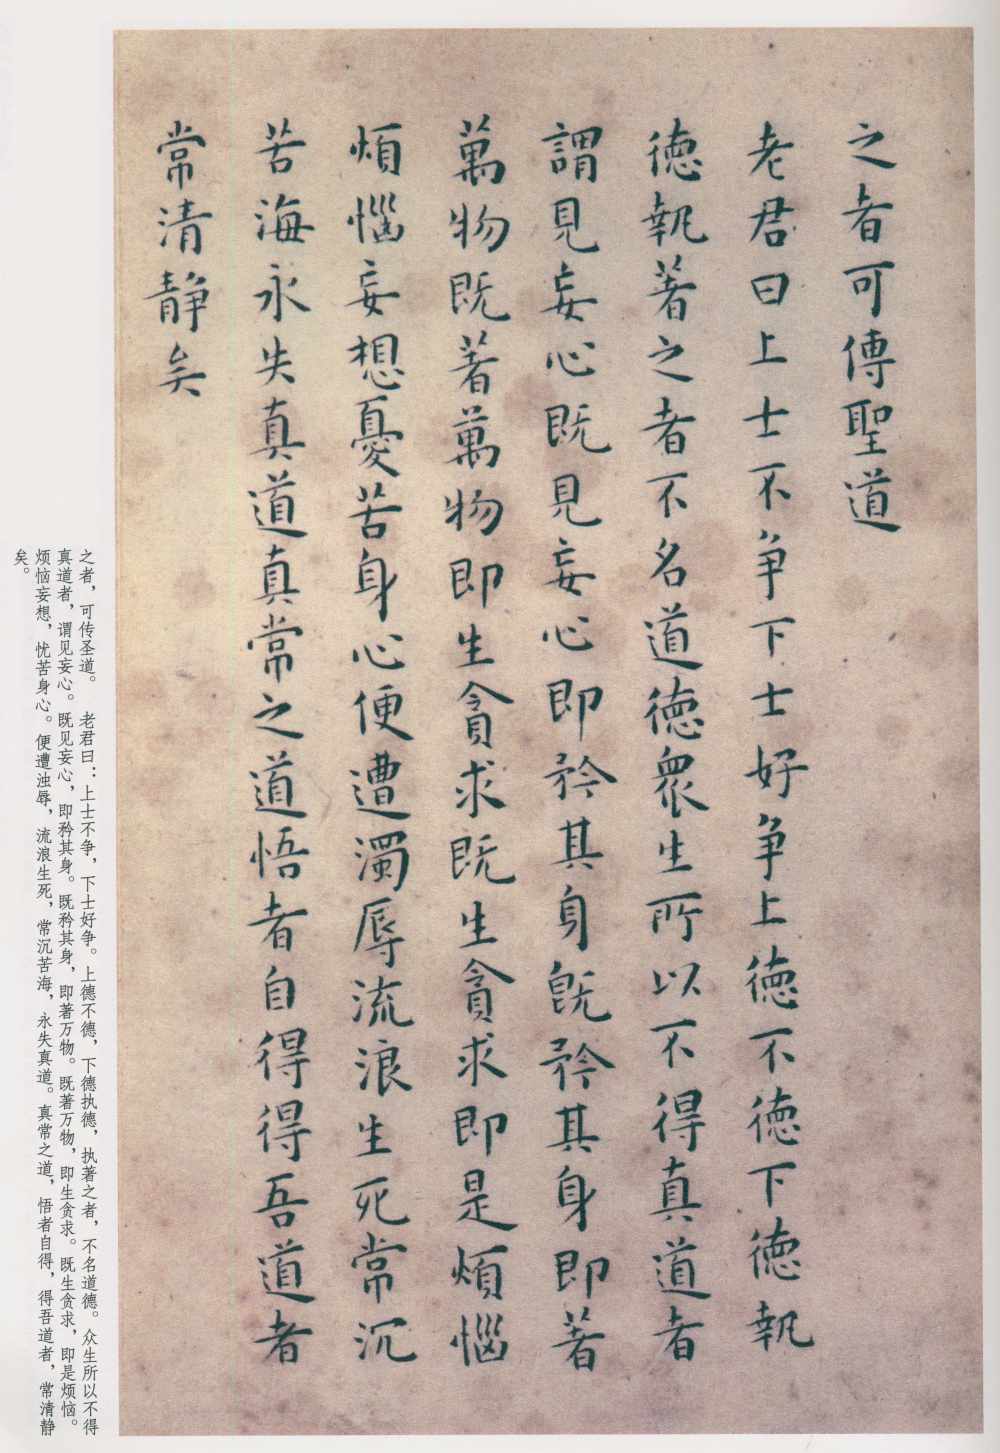 之者可傳聖道
老君曰上士不争下士好争上德不德下德執
德執著之者不名道德衆生所以不得真道者
謂見妄心既見妄心即矜其身既矜其身即著
萬物既著萬物即生貪求既生貪求即是煩惱
煩惱妄想憂苦身心便遭濁辱流浪生死常沉
苦海永失真道真常之道悟者自得得吾道者
常清静矣
之者，可传圣道。 老君曰：上士不争，下士好争。上德不德，下德执德，执著之者，不名道德。众生所以不得
真道者，谓见妄心。既见妄心，即矜其身。既矜其身，即著万物。既著万物，即生贪求。既生贪求，即是烦恼。
烦恼妄想，忧苦身心。便遭浊辱，流浪生死，常沉苦海，永失真道。真常之道，悟者自得，得吾道者，常清静
矣。